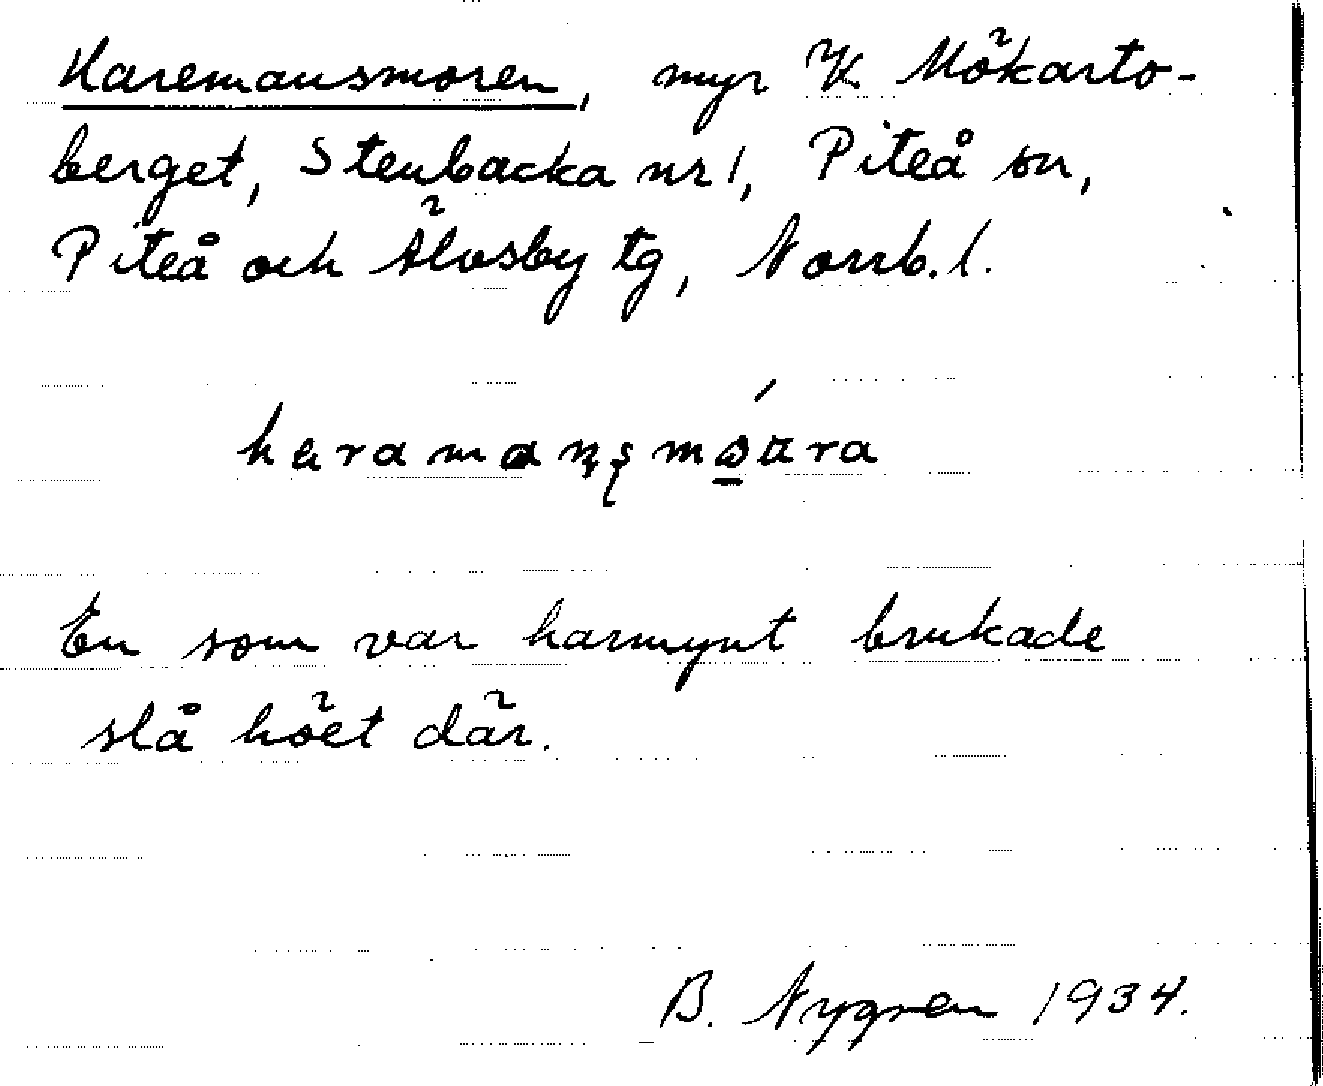 Haremansmoren, myr V Mökarto-
berget, Stenbacka nr 1, Piteå sn,
Piteå och Älvsby tg, Norrb. l.
En som var harmynt brukade
slå höet där.
B. Nygren 1934.